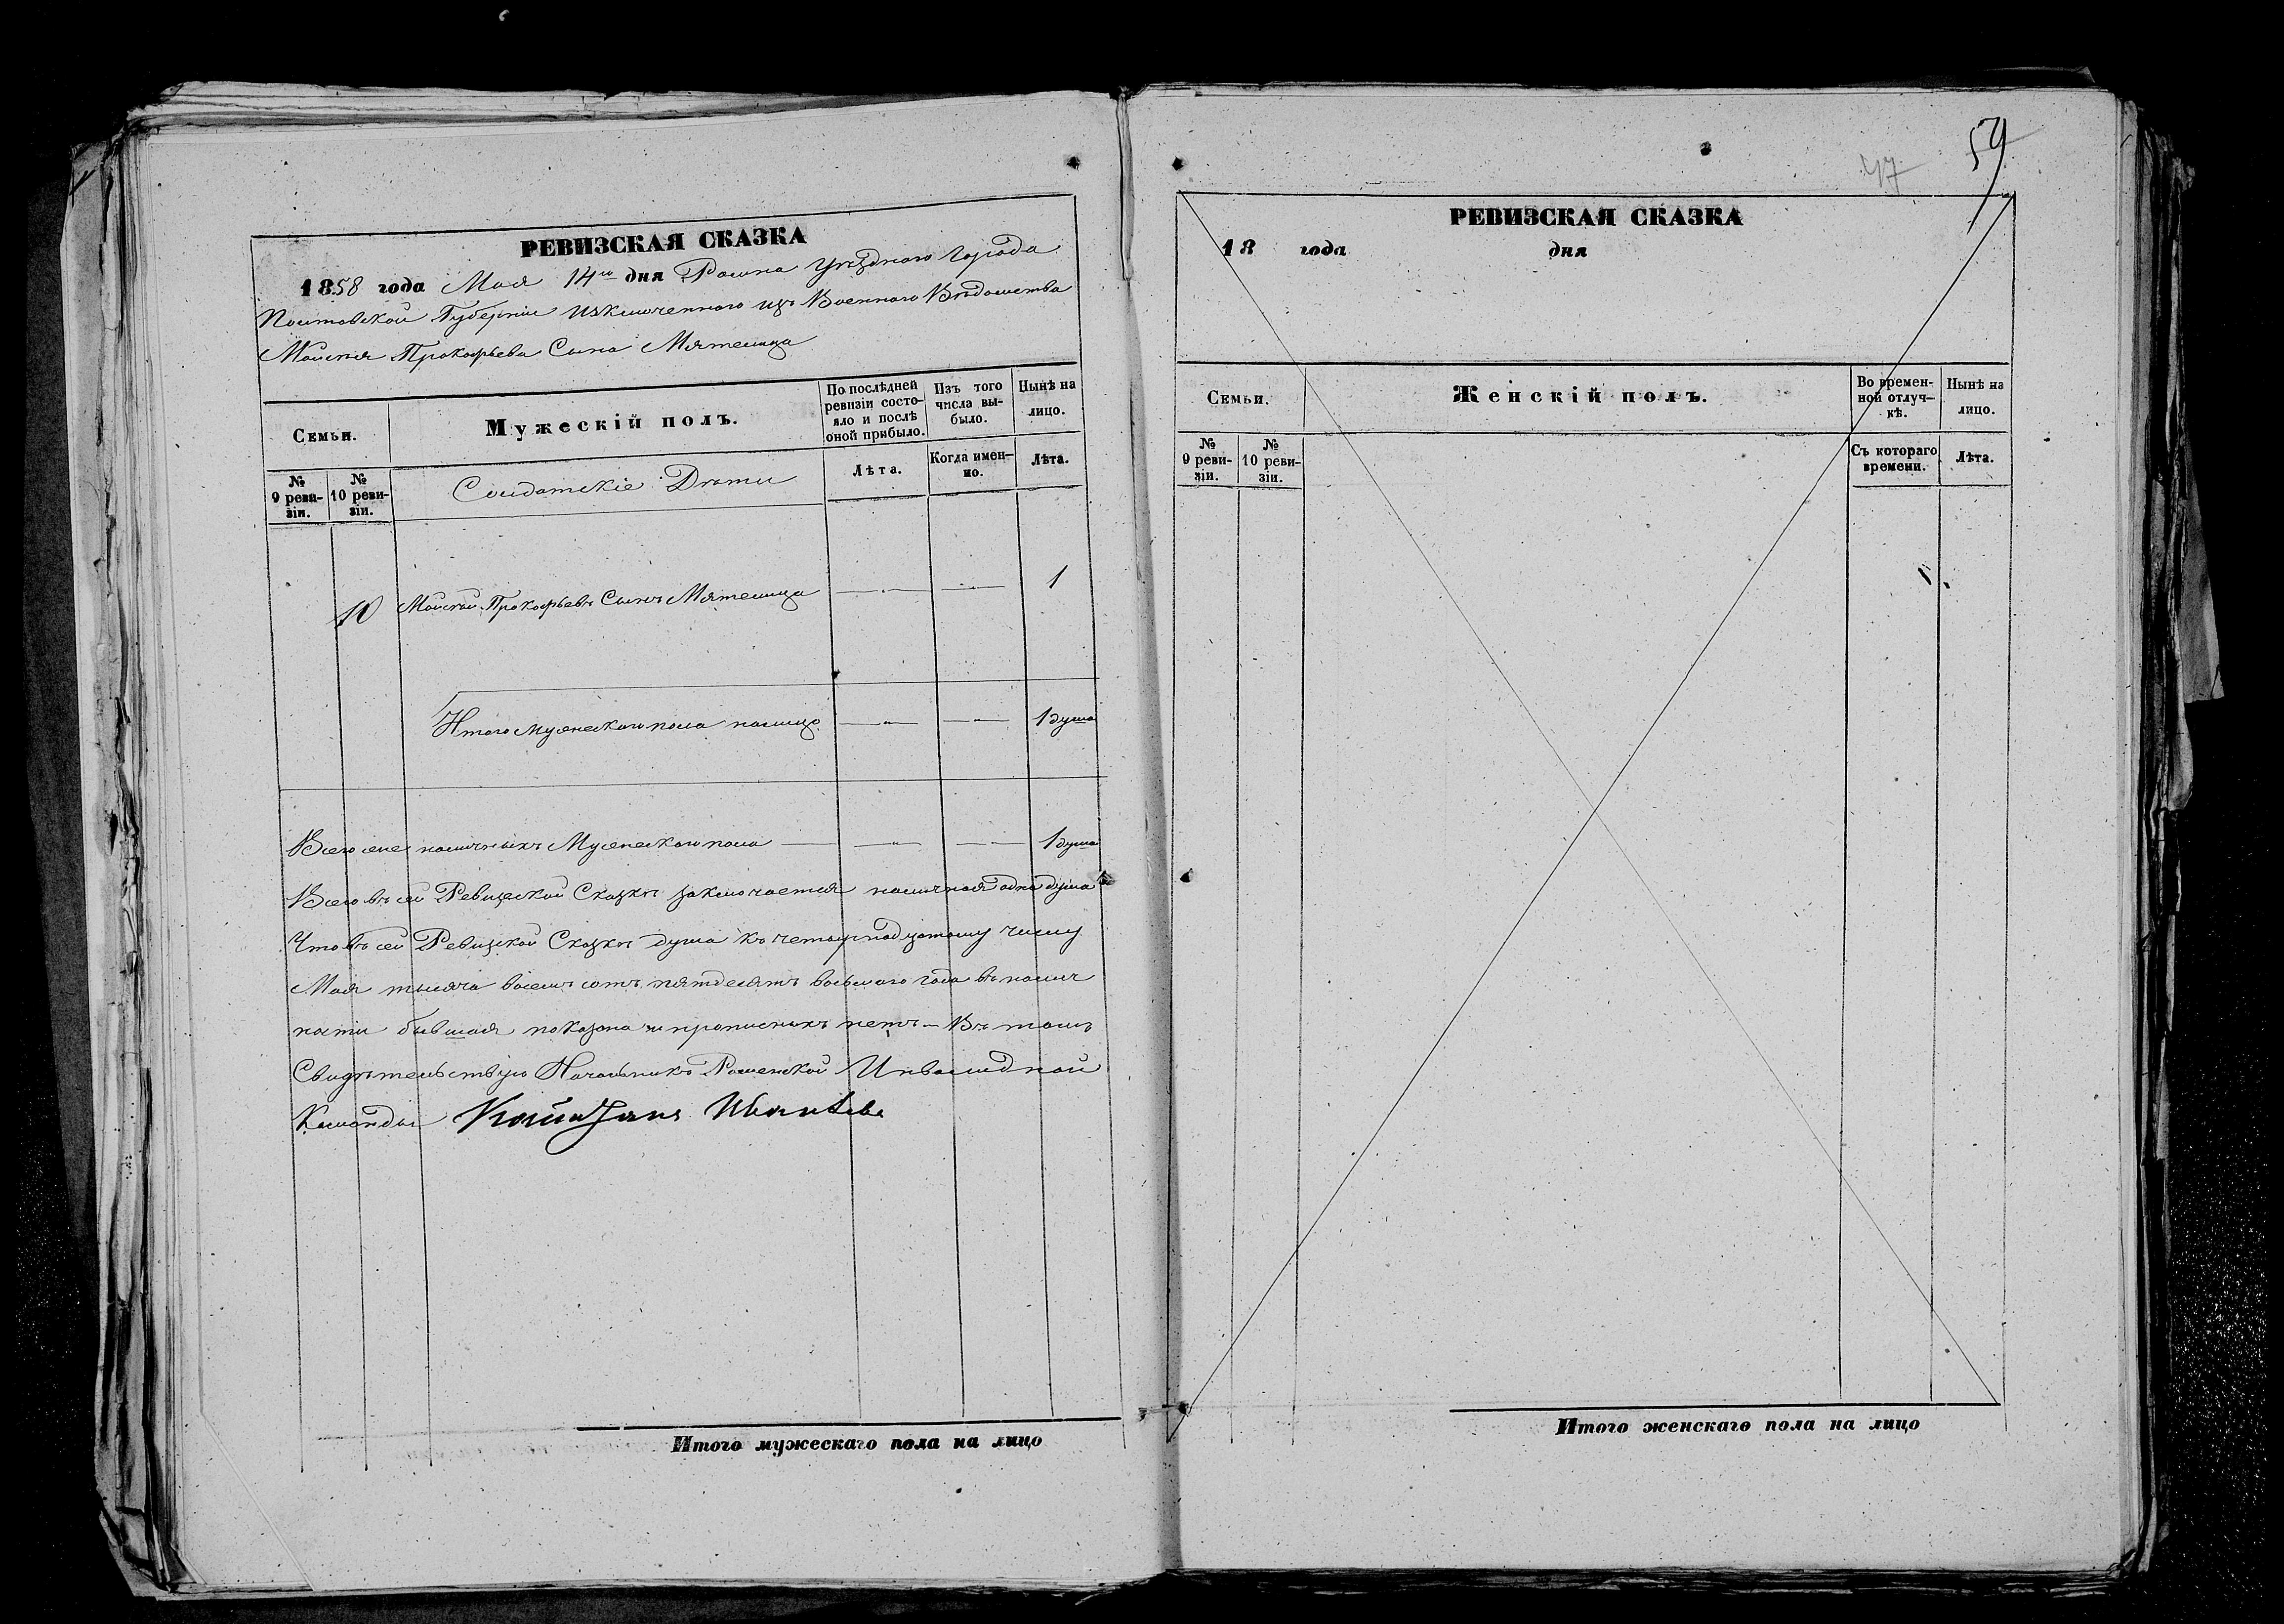 РЕВИЗСКАЯ СКАЗКА
1858 года Мая 14го дня Ромна уѣзднаго города
Полтавской Губерніи изключенного изъ Военного Вѣдомства
Моисея Прокофьева Сына Мятелица
Семьи.
Мужескій полъ.
По послѣдней ревизіи состояло и послѣ оной прибыло.
Изъ того числа выбыло.
Нынѣ на лицо.
№ 9 ревизіи.
№ 10 ревизіи.
Солдатскіе Дѣти
Лѣта.
Когда именно.
Лѣта.
10 Моисей Прокофьевъ Сынъ Мятелица 1
Итого мужескаго пола налицо 1 душа
Всего же наличныхъ Мужескаго пола 1 душа
Всего въ сей Ревизской Сказкѣ заключается наличная одна душа
Что въ сей Ревизской Сказкѣ душа къ четырнадцатому числу
Мая тысяча восемь сотъ пятдесятъ восьмаго года въ налич
ности бывшая показана и прописныхъ нетъ – Въ томъ
Свидѣтельствую Начальникъ Роменской Инвалидной
Команды
Итого мужескаго пола на лицо
47
59
РЕВИЗСКАЯ СКАЗКА
18 года дня
Семьи.
Женскій полъ.
Во временной отлучкѣ.
Нынѣ на лицо.
№ 9 ревизіи.
№ 10 ревизіи.
Съ котораго времени.
Лѣта.
Итого женскаго пола на лицо